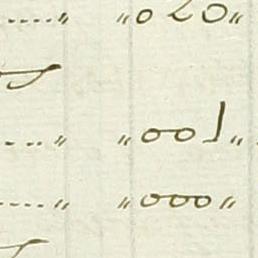 ....〃 〃020〃
....〃 〃001〃
....〃 〃000〃